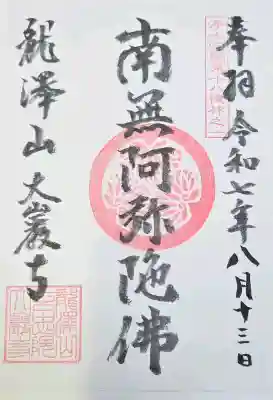 奉拝 令和七年八月十三日
南無阿弥陀佛
龍澤山 大巖寺